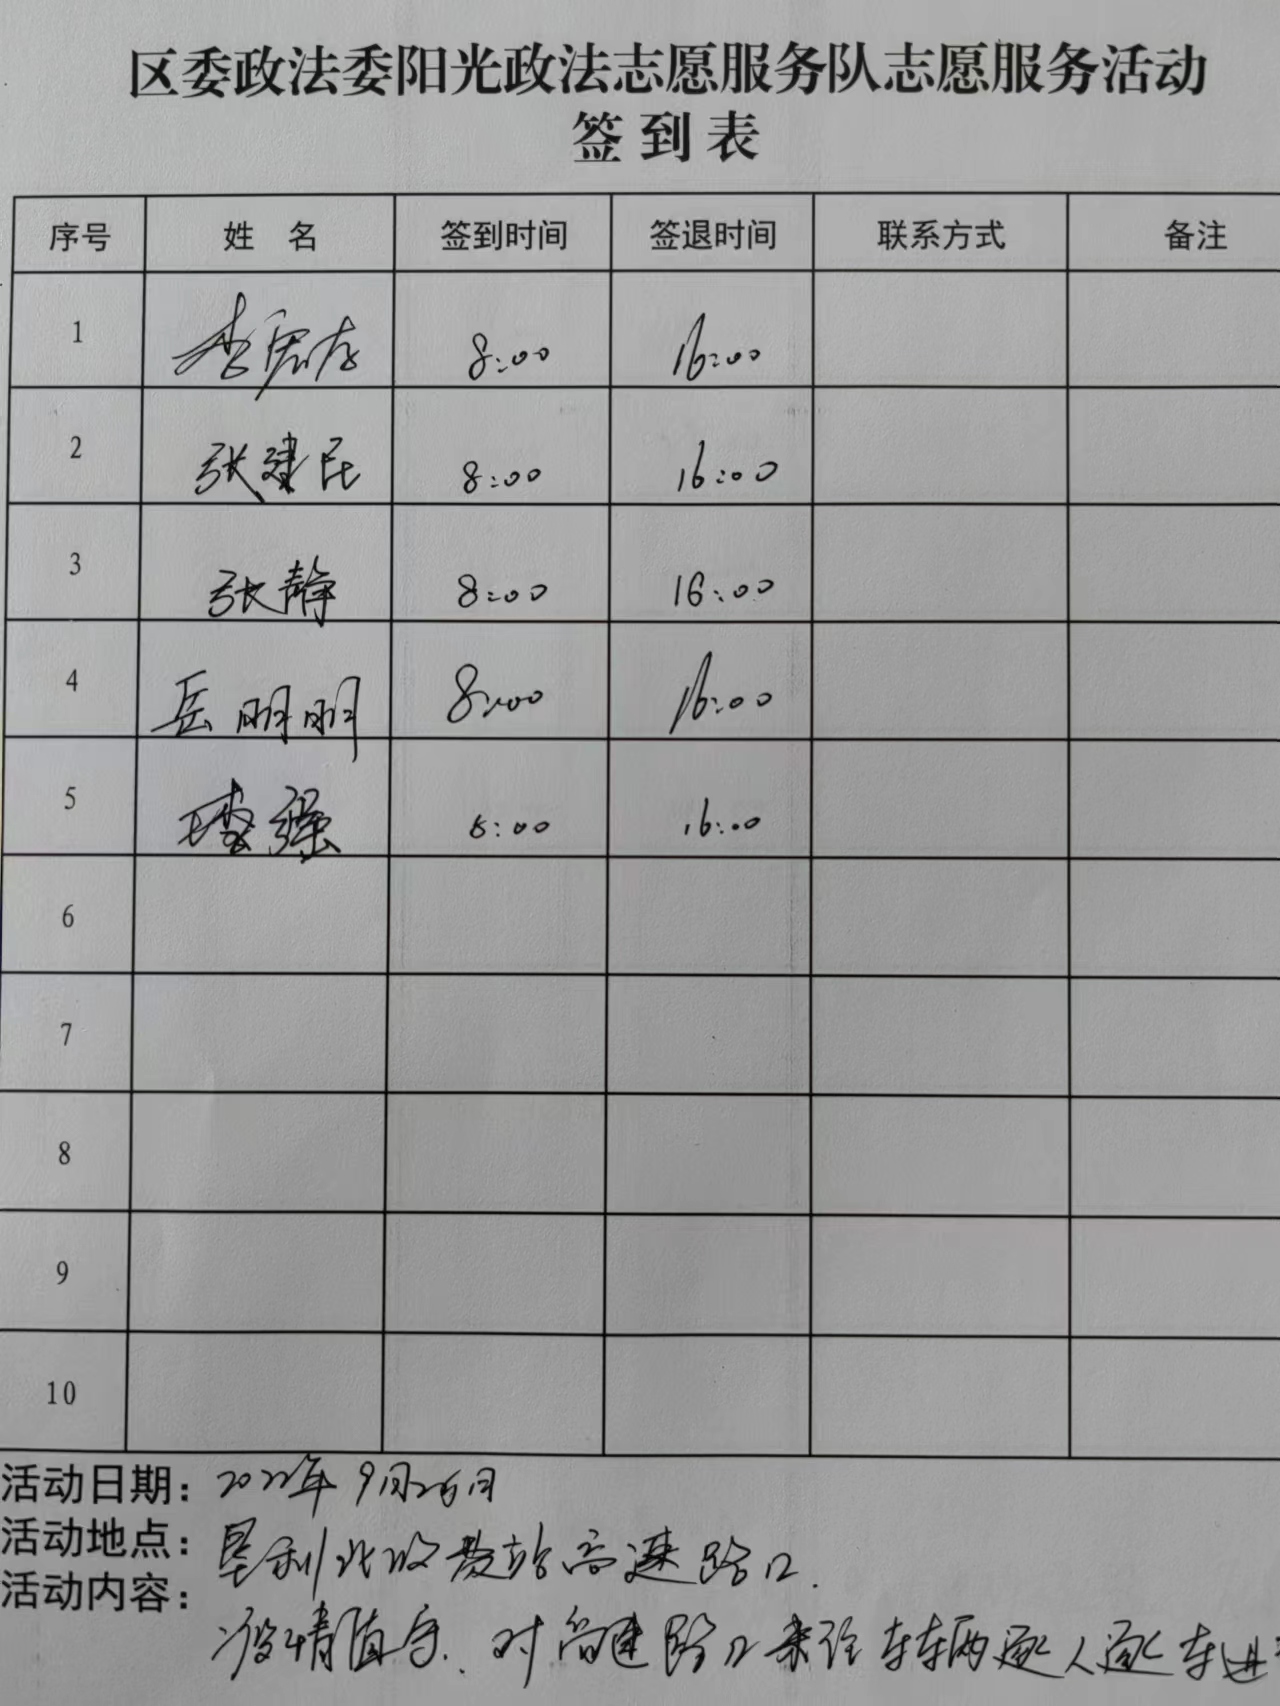 区委政法委阳光政法志愿服务队志愿服务活动
签到表
序号 姓 名 签到时间 签退时间 联系方式 备注
1 李 8:00 16:00
2 张建民 8:00 16:00
3 张静 8:00 16:00
4 岳明明 8:00 16:00
5 强 8:00 16:00
6
7
8
9
10
活动日期：2022年9月26日
活动地点：垦利北收费站高速路口.
活动内容：
疫情值守. 对高速路口来往车辆逐人逐车进